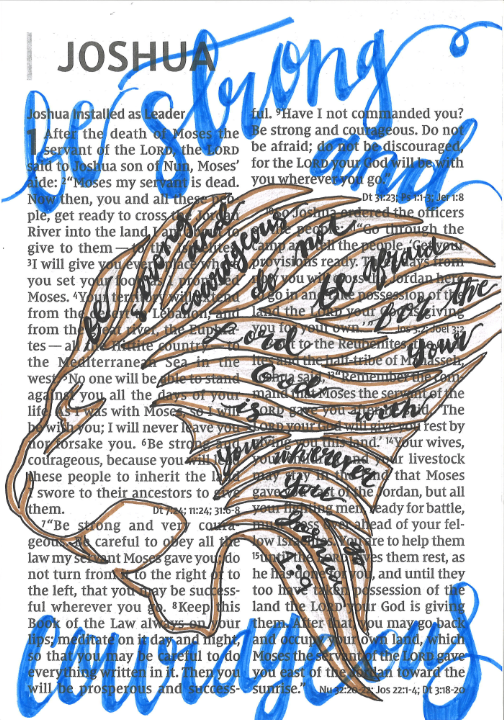 be strong
and
JOSHUA
Joshua Installed as Leader
1 After the death of Moses the
servant of the LORD, the LORD
said to Joshua son of Nun, Moses’
aide: ²“Moses my servant is dead.
Now then, you and all these peo-
ple, get ready to cross the Jordan
River into the land I am
give to them —
³I will give you every place where
you set your foot, as I promised
Moses. ⁴Your territory will extend
from the desert to Lebanon, and
from the great river, the Euphra-
tes — all the Hittite country — to
the Mediterranean Sea in the
west. ⁵No one will be able to stand
against you all the days of your
life. As I was with Moses, so I will
be with you; I will never leave you
nor forsake you. ⁶Be strong and
courageous, because you will lead
these people to inherit the land
I swore to their ancestors to give
them. Dt 7:24; 11:24; 31:6-8
⁷“Be strong and very coura-
geous. Be careful to obey all the
law my servant Moses gave you; do
not turn from it to the right or to
the left, that you may be success-
ful wherever you go. ⁸Keep this
Book of the Law always on your
lips; meditate on it day and night,
so that you may be careful to do
everything written in it. Then you
will be prosperous and success-
ful. ⁹Have I not commanded you?
Be strong and courageous. Do not
be afraid; do not be discouraged,
for the LORD your God will be with
you wherever you go.”
Dt 31:23; Ps 1:1-3; Jer 1:8
¹⁰So Joshua ordered the officers
of the people: ¹¹“Go through the
camp and tell the people, ‘Get your
provisions ready. Three days from
now you will cross the Jordan here
to go in and take possession of the
land the LORD your God is giving
you for your own.’” Joel 3:2
¹²But to the Reubenites, the Gad-
ites and the half-tribe of Manasseh,
Joshua said, ¹³“Remember the com-
mand that Moses the servant of the
LORD gave you after he said, ‘The
LORD your God will give you rest by
giving you this land.’ ¹⁴Your wives,
your children and your livestock
may stay in the land that Moses
gave you east of the Jordan, but all
your fighting men, ready for battle,
must cross over ahead of your fel-
low Israelites. You are to help them
¹⁵until the LORD gives them rest, as
he has done for you, and until they
too have taken possession of the
land the LORD your God is giving
them. After that, you may go back
and occupy your own land, which
Moses the servant of the LORD gave
you east of the Jordan toward the
sunrise.” Nu 32:20-22; Jos 22:1-4; Dt 3:18-20
Be strong
and
courageous
do not
be afraid
for the
Lord your
God
is with
you wherever
you go
Joshua
1:9
courageous